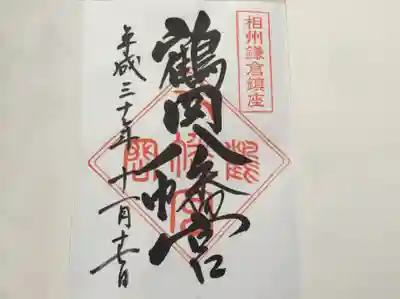 相州鎌倉鎮座
鶴岡八幡宮
平成三十年十一月十七日